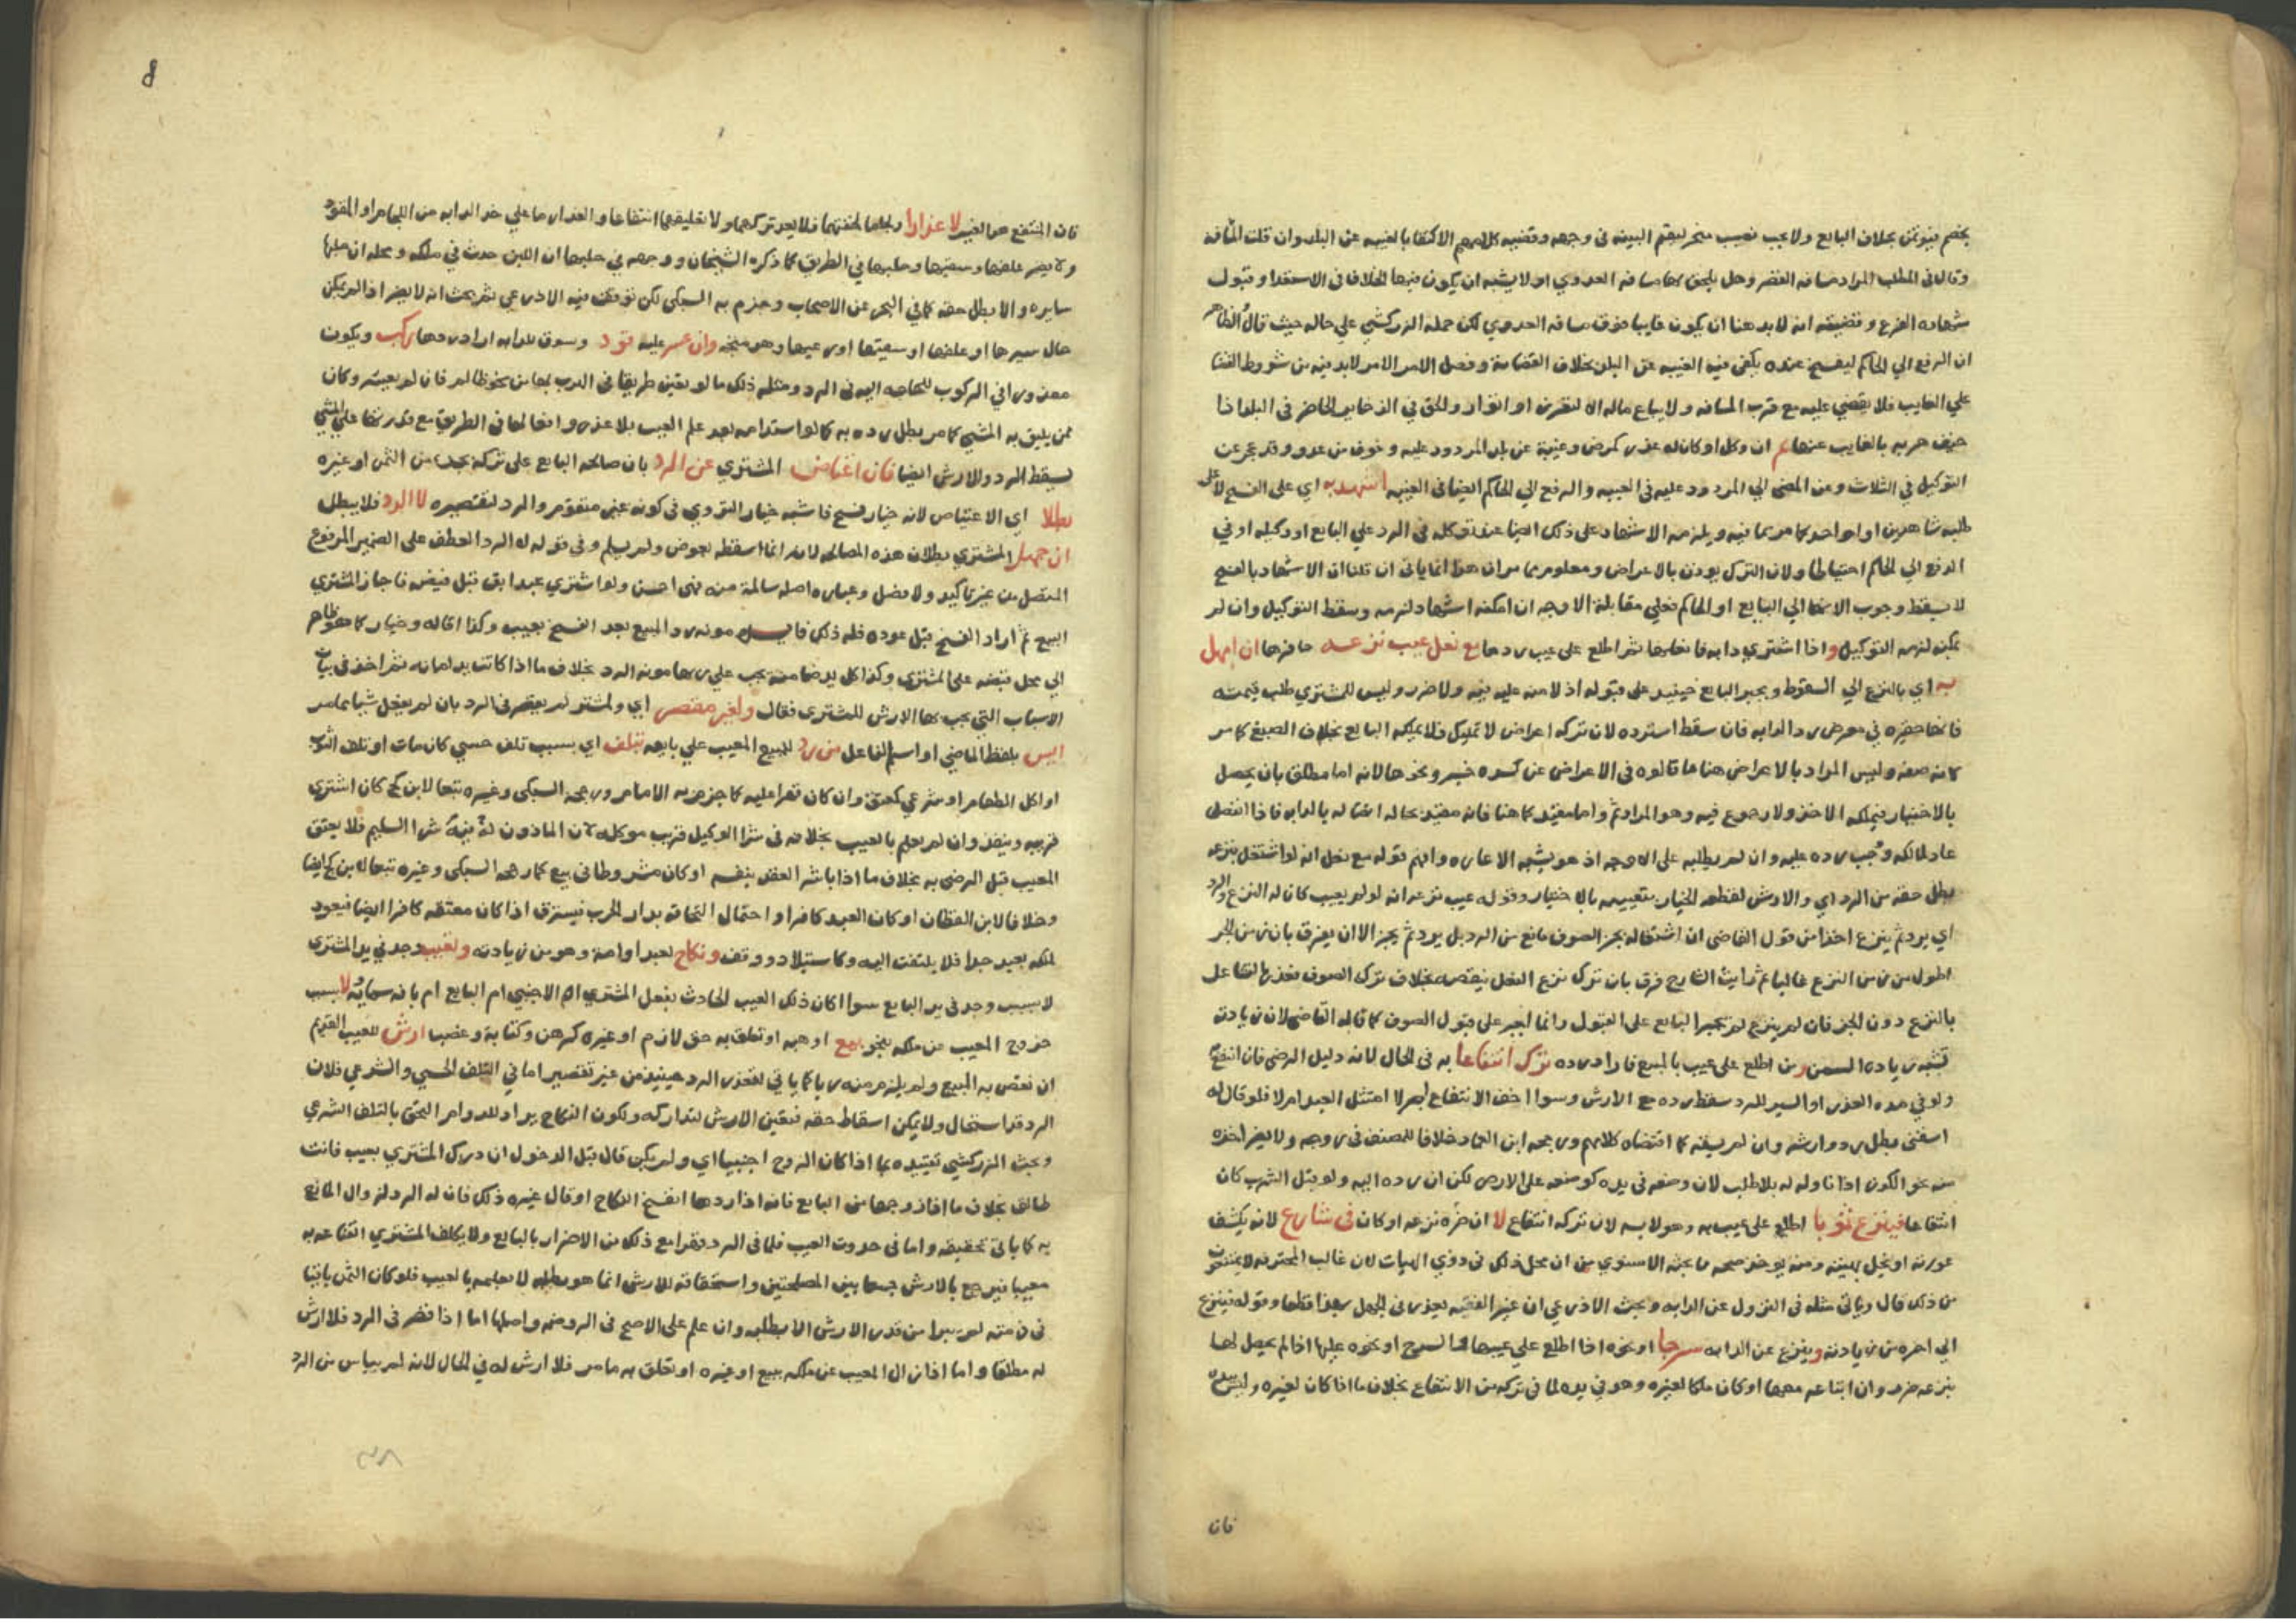 بخصم فيؤتمن بخلاف البايع ولا يجب نصب مسخر ليقيم البينه في وجهه وقضيه كلامهم الاكتفا بالغيبه عن البلد وان قلت المسافه
وقال في المطلب المراد مسافه القصر وهل يلحق بها مسافه العدوي او لا يشبه ان يكون فيها الخلاف في الاستعدا وقبول
شهاده الفرع وقضيته انه لا بد هنا ان يكون غايبا فوق مسافه العدوي لكن حمله الزركشي علي حاله حيث قال الظاهر
ان الرفع الي الحاكم ليفسخ عنده يكفي فيه الغيبه عن البلد بخلاف القضا به وفصل الامر الامر لا بد فيه من شروط القضا
علي الغايب فلا يقضي عليه مع قرب المسافه ولا يباع ماله الا لتعزز او توار والحق في الذخاير الحاضر في البلد اذا
خيف هربه بالغايب عنها ثم ان وكل او كان له عذر كمرض وغيبة عن بلد المردود عليه وخوف من عدو وقد عجز عن
التوكيل في الثلاث وعن المضي الي المردود عليه في العيبه والرفع الي الحاكم ايضا في الغيبه اشهد به اي على الفسخ لا على
طلبه شاهدين او واحد كما مر بما فيه ويلزمه الاشهاد على ذلك ايضا عند توكله في الرد علي البايع او وكيله او في
الدفع الي الحاكم احتياطا ولان الترك يوذن بالاعراض ومعلوم مما مر ان هذا انما ياتي ان قلنا ان الاشهاد بالفسخ
لا يسقط وجوب الانها الي البايع او الحاكم فعلي مقابلة الاوجه ان امكنه اشهاد لزمه وسقط التوكيل وان لم
يمكنه لزمه التوكيل واذا اشتري دابه فانعلها ثم اطلع على عيب ردها مع نعل عيب نزعه حافرها ان اهمل
به اي بالنزع الي السقوط ويجبر البايع حينيذ على قبوله اذ لا منه عليه فيه ولا ضرر وليس للمشتري طلب قيمته
فانها حقيره في معرض رد الدابه فان سقط استرده لان تركه اعراض لا تمليك فلا يملكه البايع بخلاف الصبغ كما مر
كانه صفه وليس المراد بالاعراض هنا ما قالوه في الاعراض عن كسره خبز ونحوها لانه اما مطلق بان يحصل
بالاختيار فيملكه الاخذ ولا رجوع فيه وهو المراد ثم واما مقيد كما هنا فانه مقيد بحاله اتصاله بالدابه فاذا انفصل
عاد لمالكه وجب رده عليه وان لم يطلبه على الاوجه اذ هو يشبه الاعاره وافهم قوله مع نعل انه لو اشتغل بنزعه
بطل حقه من الرد اي والارش لقطعه الخيار بتعييبه بالاختيار وقوله عيب نزعه انه لو لم يعيب كان له النزع والرد
اي يرد ثم ينزع اخذا من قول القاضي ان اشتغاله بجز الصوف مانع من الرد بل يرد ثم يجز الا ان يفرق بان زمن الجز
اطول من زمن النزع غالبا ثم رايت الشارح فرق بان ترك نزع النعل ينقصه بخلاف ترك الصوف فعذر بالتشاغل
بالنزع دون الجز فان لم ينزع لم يجبر البايع على القبول وانما اجبر على قبول الصوف كما قاله القاضي لان زيادته
تشبه زياده السمن ومن اطلع على عيب بالمبيع فاراد رده ترك انتفاعا به في الحال لانه دليل الرضي فان انتفع
ولو في مده العذر او السير للرد سقط رده مع الارش وسوا اخف الانتفاع ام لا امتثل العبد ام لا فلو قال له
اسقني بطل رد وارشه وان لم يسقه كما اقتضاه كلامهم ورجحه ابن العماد خلافا للمصنف في وجه ولا يضر اخذه
منه نحو الكوز اذا ناوله له بلا طلب لان وضعه في يده كوضعه على الارض لكن ان رده اليه ولو قبل الشرب كان
انتفاعا فينزع ثوبا اطلع على عيب به وهو لابسه لان تركه انتفاع لا ان ضره نزعه او كان في شارع لانه يكشف
عورته او يخل بهيئته ومنه يوخذ صحه ما بحثه الاسنوي من ان محل ذلك في ذوي الهيات لان غالب المحترفه لا يمتنعون
من ذلك قال وياتي مثله في النزول عن الدابه وبحث الاذرعي ان غير الفقيه يعذر في الجهل بهذا قطعا وقوله فينزع
الي اخره من زيادته وينزع عن الدابه سرجا او نحوه اذا اطلع على عيبها بالسرج او نحوه عليها اذا لم يحصل لها
بنزعه ضرر وان ابتاعه معها او كان ملكا لغيره وهو في يده لما في تركه من الانتفاع بخلاف ما اذا كان لغيره وليس بيده
فان
فان المنتفع هو الغير لا عذارا ولجاما لخفتهما فلا يعد تركهما ولا تعليقهما انتفاعا والعذار ما علي خد الدابه من اللجام او المقود
ولا يضر علفها وسقيها وحلبها في الطريق كما ذكره الشيخان ووجهه في حلبها ان اللبن حدث في ملكه ومحله ان حلبها
سايره والا بطل حقه كما في البحر عن الاصحاب وجزم به السبكي لكن توقف فيه الاذرعي ثم بحث انه لا يضر اذا لم يمكن
حال سيرها او علفها او سقيها او رعيها وهو متجه وان عسر عليه قود وسوق للدابه اراد ردها ركب ويكون
معذورا في الركوب للحاجه اليه في الرد ومثله ذلك ما لو تعين طريقا في الهرب بها من نحو ظالم فان لم يعسر وكان
ممن يليق به المشي كما مر بطل رده به كما لو استدامه بعد علم العيب بلا عذر وانعالها في الطريق مع قدرتها على المشي
يسقط الرد والارش ايضا فان اعتاض المشتري عن الرد بان صالحه البايع على تركه بجزء من الثمن او غيره
بطلا اي الاعتياض لانه خيار فسخ فاشبه خيار التروي في كونه غير متقوم والرد لتقصيره لا الرد فلا يبطل
ان جهل المشتري بطلان هذه المصالحه لانه انما اسقطه بعوض ولم يسلم وفي قوله له الرد العطف على الضمير المرفوع
المتصل من غير تاكيد ولا فصل وعباره اصله سالمة منه فهي احسن ولو اشتري عبدا ابق قبل قبضه فاجاز المشتري
البيع ثم اراد الفسخ قبل عوده فله ذلك مونه رد المبيع بعد الفسخ بعيب وكذا اقاله وخيار كما هو ظاهر
الي محل قبضه على المشتري وكذا كل يد ضامنه يجب علي ربها مونه الرد بخلاف ما اذا كانت يد امانه ثم اخذ في بيان
الاسباب التي يجب بها الارش للمشتري فقال ولغير مقصر اي ولمشتر لم يقصر في الرد بان لم يفعل شيا مما مر
ايس بلفظ الماضي او اسم الفاعل من رد للمبيع المعيب علي بايعه بتلف اي بسبب تلف حسي كان مات او تلف الثوب
او اكل الطعام او شرعي كعتق وان كان قهرا عليه كما جزم به الامام ورجحه السبكي وغيره تبعا لابن كج كان اشتري
قريبه وينفذ وان لم يعلم بالعيب بخلافه في شرا الوكيل قريب موكله لان الماذون له فيه شرا السليم فلا يعتق
المعيب قبل الرضي به بخلاف ما اذا باشر العقد بنفسه او كان مشروطا في بيع كما رجحه السبكي وغيره تبعا لابن كج ايضا
وخلافا لابن القطان او كان العبد كافرا واحتمال التحاقه بدار الحرب فيسترق اذا كان معتقه كافرا ايضا فيعود
لملكه بعيد جدا فلا يلتفت اليه وكاستيلاد ووقف ونكاح لعبد او امة وهو من زيادته ولعيب وجد في يد المشتري
لا بسبب وجد في يد البايع سوا اكان ذلك العيب الحادث بفعل المشتري ام الاجنبي ام البايع ام بافه سماويه لا بسبب
خروج المعيب عن ملكه بنحو بيع او هبه او تعلق به حق لازم او غيره كرهن وكتابة وغصب ارش للعيب القديم
ان نقص به المبيع ولم يلزم منه ربا كما ياتي لتعذر الرد حينيذ من غير تقصير اما في التلف الحسي والشرعي فلان
الرد قد استحال ولا يمكن اسقاط حقه فتعين الارش لتداركه ولكون النكاح يراد للدوام التحق بالتلف الشرعي
وبحث الزركشي تقييده بما اذا كان الزوج اجنبيا اي ولم يكن قال قبل الدخول ان ردك المشتري بعيب فانت
طالق بخلاف ما اذا زوجها من البايع فانه اذا ردها انفسخ النكاح او قال غيره ذلك فان له الرد لزوال المانع
به كما ياتي تحقيقه واما في حدوث العيب فلما في الرد قهرا مع ذلك من الاضرار بالبايع ولا يكلف المشتري القناعه به
معيبا فيرجع بالارش جمعا بين المصلحتين واستحقاقه للارش انما هو بطلبه لا بعلمه بالعيب فلو كان الثمن باقيا
في ذمته لم يبرا من قدر الارش الا بطلبه وان علم على الاصح في الروضه واصلها اما اذا قصر في الرد فلا ارش
له مطلقا واما اذا زال المعيب عن ملكه ببيع او غيره او تعلق به ما مر فلا ارش له في الحال لانه لم يياس من الرد